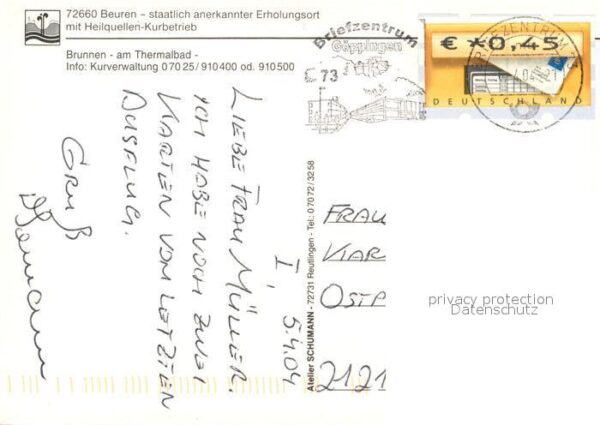 72660 Beuren – staatlich anerkannter Erholungsort
mit Heilquellen-Kurbetrieb
Brunnen - am Thermalbad -
Info: Kurverwaltung 0 70 25 / 910 400 od. 910 500
Briefzentrum
Göppingen
73
BRIEFZENTRUM
€ *0,45
DEUTSCHLAND
I, 5.4.04
LIEBE FRAU MÜLLER.
ICH HABE NOCH ZWEI
KARTEN VOM LETZTEN
AUSFLUG.
GRUß
Atelier SCHUMANN - 72731 Reutlingen - Tel.: 0 70 72 / 32 58
FRAU
KAR
OSTP
2121
privacy protection
Datenschutz